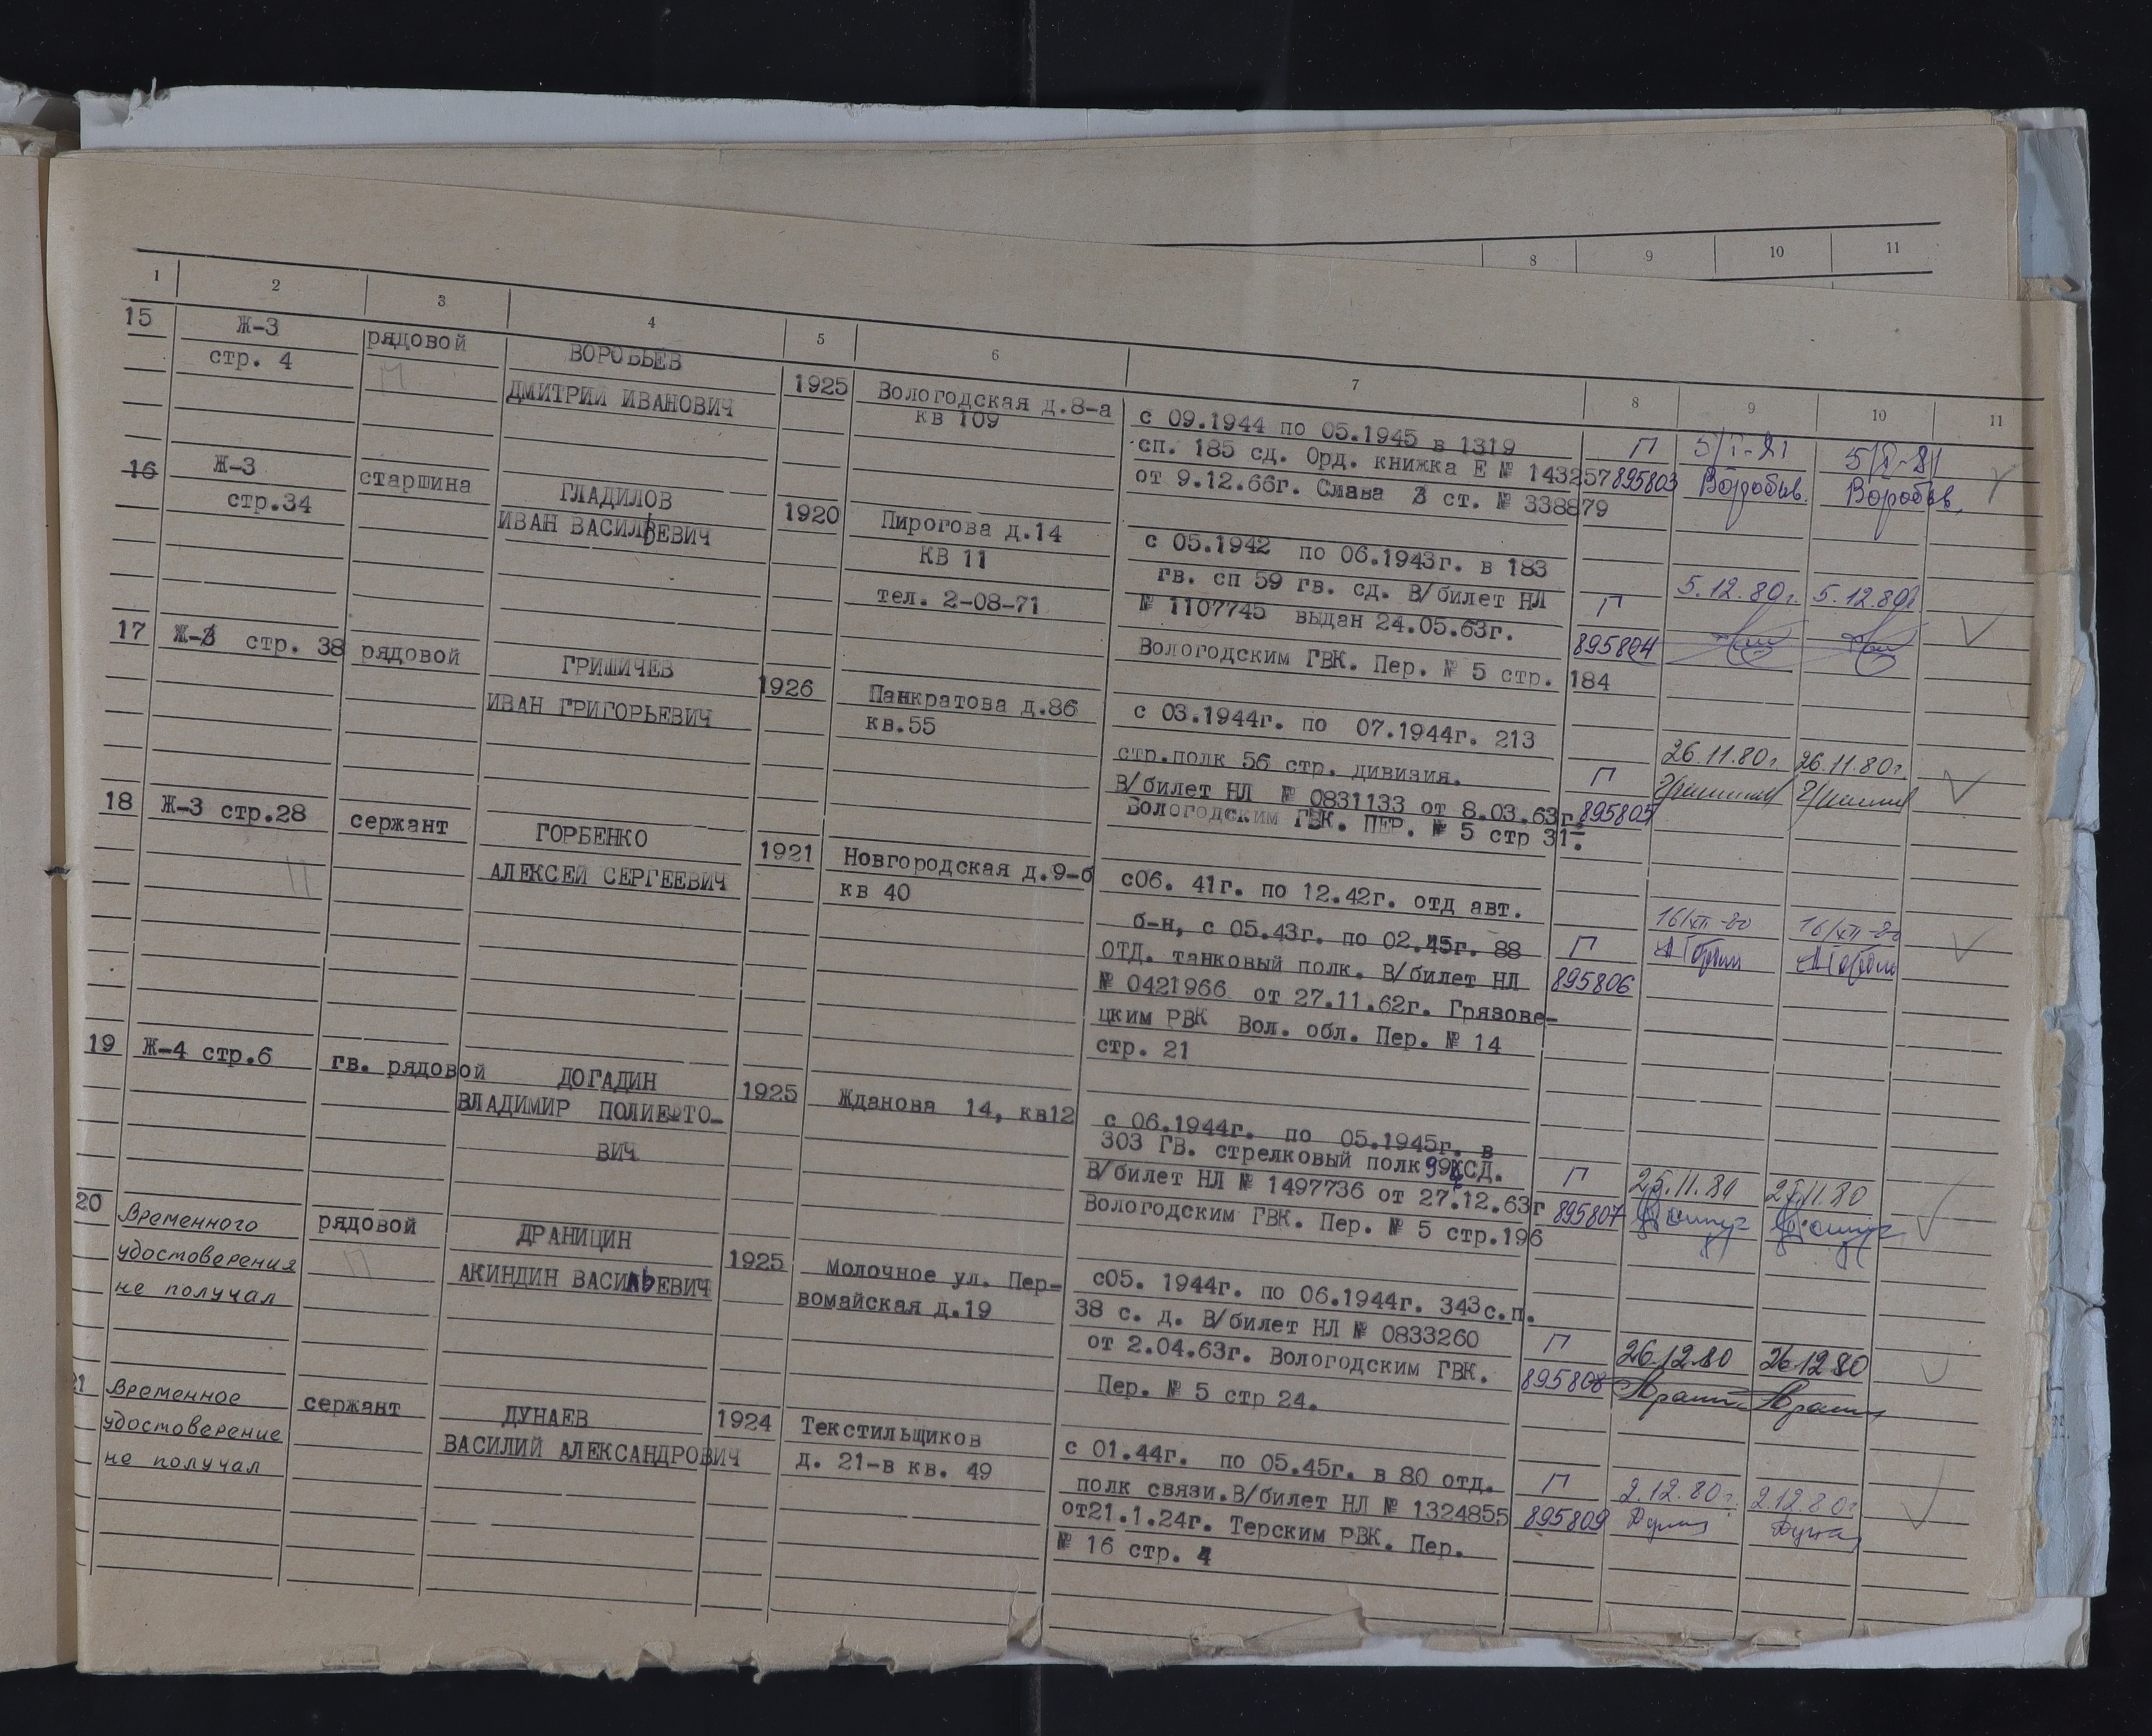 8 9 10 11
1 2 3 4 5 6 7 8 9 10 11
15 Ж-3 рядовой ВОРОБЬЕВ
стр. 4 ДМИТРИЙ ИВАНОВИЧ 1925 Вологодская д.8-а
кв 109 с 09.1944 по 05.1945 в 1319 П 5/I-81 5/I-81
сп. 185 сд. Орд. книжка Е № 143257 895803 Воробьев. Воробьев.
от 9.12.66г. Слава 3 ст. № 338879
16 Ж-3 старшина ГЛАДИЛОВ
стр.34 ИВАН ВАСИЛЬЕВИЧ 1920 Пирогова д.14
КВ 11 с 05.1942 по 06.1943г. в 183
тел. 2-08-71 гв. сп 59 гв. сд. В/билет НЛ П 5.12.80г. 5.12.80г
№ 1107745 выдан 24.05.63г. 895804
Вологодским ГВК. Пер. № 5 стр. 184
17 Ж-3 стр. 38 рядовой ГРИШИЧЕВ
ИВАН ГРИГОРЬЕВИЧ 1926 Панкратова д.86
кв.55 с 03.1944г. по 07.1944г. 213
стр.полк 56 стр. дивизия. П 26.11.80г. 26.11.80г.
В/билет НЛ № 0831133 от 8.03.63г. 895805
Вологодским ГВК. ПЕР. № 5 стр 31.
18 Ж-3 стр.28 сержант ГОРБЕНКО
АЛЕКСЕЙ СЕРГЕЕВИЧ 1921 Новгородская д.9-б
кв 40 с06. 41г. по 12.42г. отд авт.
б-н, с 05.43г. по 02.45г. 88 П 16/XII-80 16/XII-80
ОТД. танковый полк. В/билет НЛ 895806
№ 0421966 от 27.11.62г. Грязове-
цким РВК Вол. обл. Пер. № 14
стр. 21
19 Ж-4 стр.6 гв. рядовой ДОГАДИН
ВЛАДИМИР ПОЛИЕФТО- 1925 Жданова 14, кв12
ВИЧ с 06.1944г. по 05.1945г. в
303 ГВ. стрелковый полк 99 СД.
В/билет НЛ № 1497736 от 27.12.63г П 25.11.80 25.11.80
Вологодским ГВК. Пер. № 5 стр.196 895807
20 Временного рядовой ДРАНИЦИН
удостоверения АКИНДИН ВАСИЛЬЕВИЧ 1925 Молочное ул. Пер-
не получал вомайская д.19 с05. 1944г. по 06.1944г. 343 с.п.
38 с. д. В/билет НЛ № 0833260
от 2.04.63г. Вологодским ГВК. П 26.12.80 26.12.80
Пер. № 5 стр 24. 895808
21 Временное сержант ДУНАЕВ
удостоверение ВАСИЛИЙ АЛЕКСАНДРОВИЧ 1924 Текстильщиков
не получал д. 21-в кв. 49 с 01.44г. по 05.45г. в 80 отд.
полк связи.В/билет НЛ № 1324855 П 2.12.80г. 2.12.80г
от21.1.24г. Терским РВК. Пер. 895809
№ 16 стр. 4